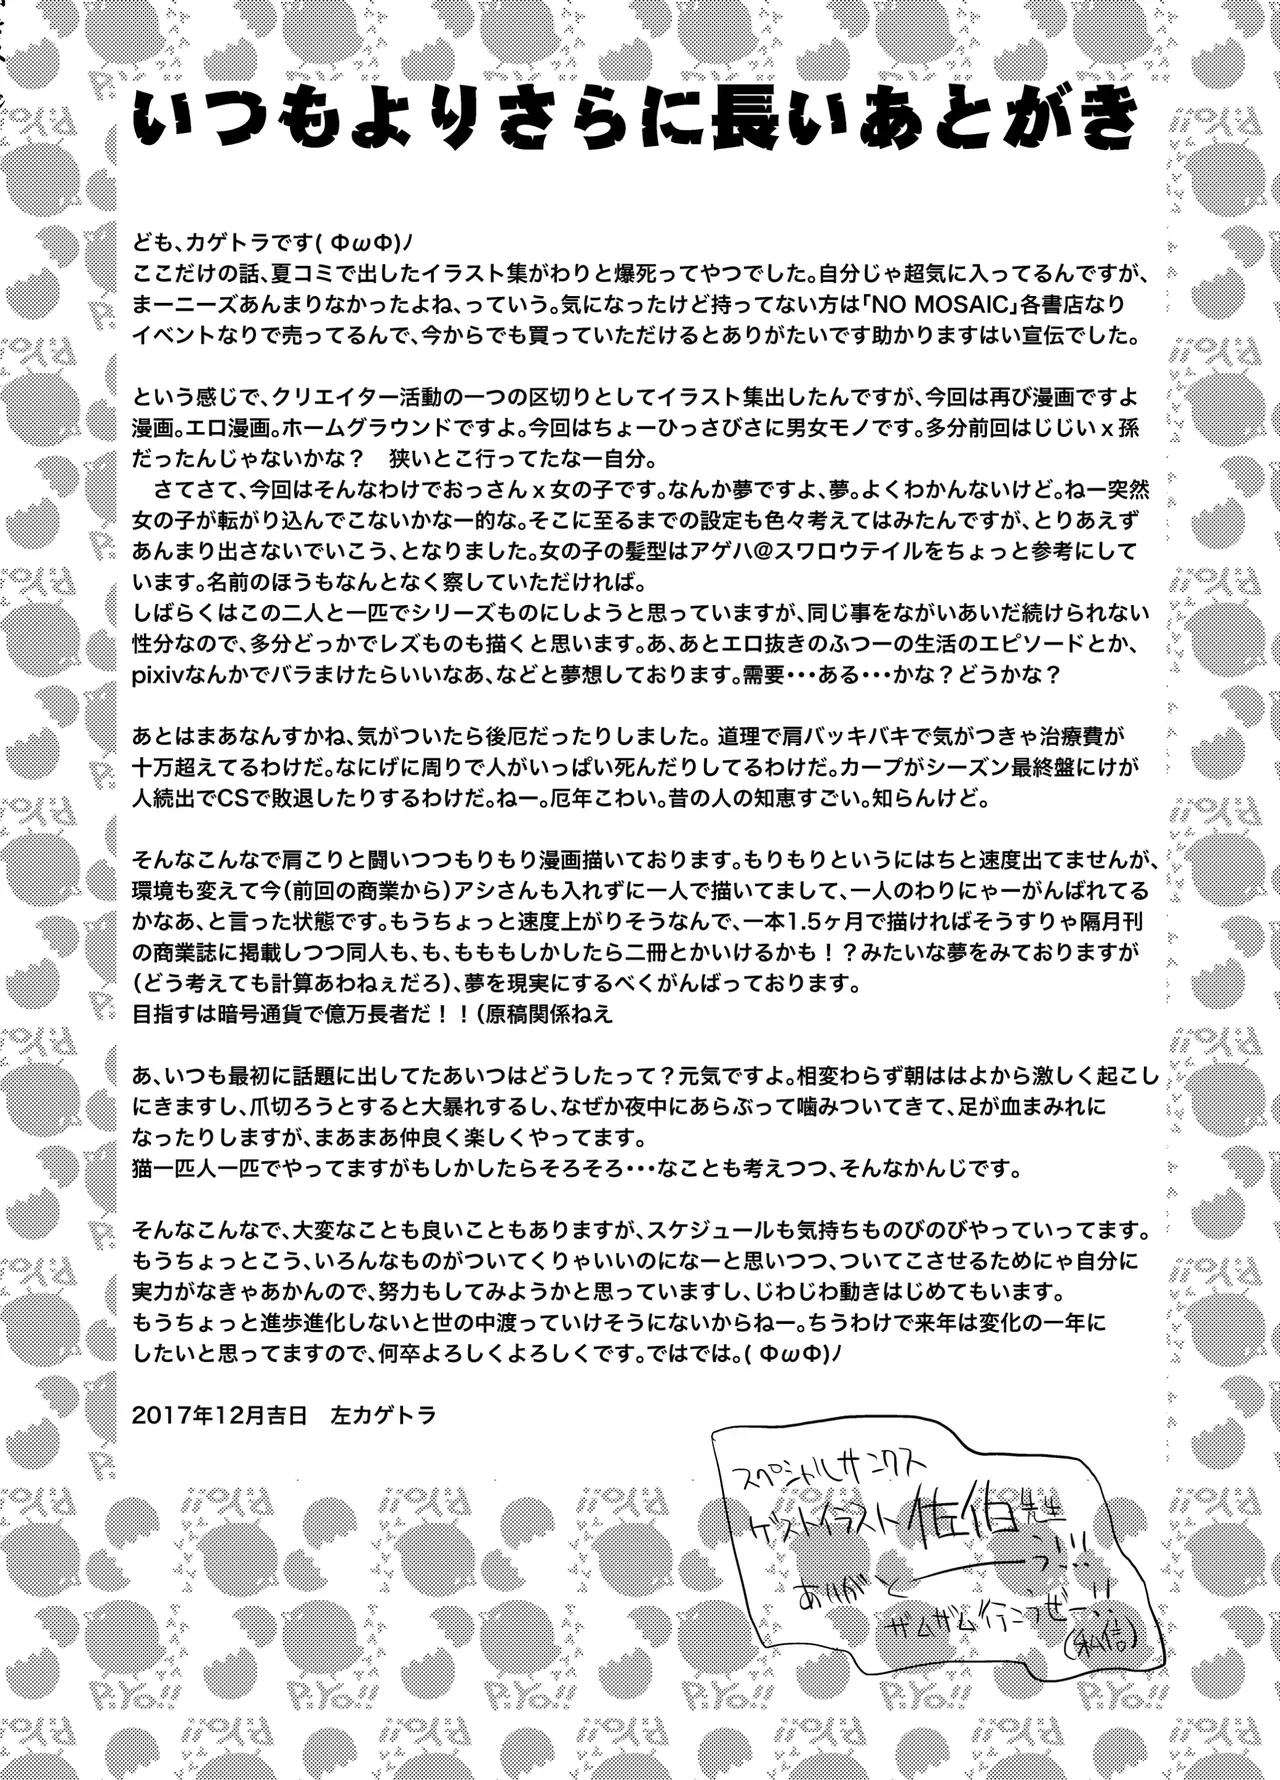 いつもよりさらに長いあとがき
ども、カゲトラです( ΦωΦ)ﾉ
ここだけの話、夏コミで出したイラスト集がわりと爆死ってやつでした。自分じゃ超気に入ってるんですが、
まーニーズあんまりなかったよね、っていう。気になったけど持ってない方は「NO MOSAIC」各書店なり
イベントなりで売ってるんで、今からでも買っていただけるとありがたいです助かりますはい宣伝でした。
という感じで、クリエイター活動の一つの区切りとしてイラスト集出したんですが、今回は再び漫画ですよ
漫画。エロ漫画。ホームグラウンドですよ。今回はちょーひっさびさに男女モノです。多分前回はじじいｘ孫
だったんじゃないかな？　狭いとこ行ってたなー自分。
　さてさて、今回はそんなわけでおっさんｘ女の子です。なんか夢ですよ、夢。よくわかんないけど。ねー突然
女の子が転がり込んでこないかなー的な。そこに至るまでの設定も色々考えてはみたんですが、とりあえず
あんまり出さないでいこう、となりました。女の子の髪型はアゲハ@スワロウテイルをちょっと参考にして
います。名前のほうもなんとなく察していただければ。
しばらくはこの二人と一匹でシリーズものにしようと思っていますが、同じ事をながいあいだ続けられない
性分なので、多分どっかでレズものも描くと思います。あ、あとエロ抜きのふつーの生活のエピソードとか、
pixivなんかでバラまけたらいいなあ、などと夢想しております。需要・・・ある・・・かな？どうかな？
あとはまあなんすかね、気がついたら後厄だったりしました。 道理で肩バッキバキで気がつきゃ治療費が
十万超えてるわけだ。なにげに周りで人がいっぱい死んだりしてるわけだ。カープがシーズン最終盤にけが
人続出でCSで敗退したりするわけだ。ねー。厄年こわい。昔の人の知恵すごい。知らんけど。
そんなこんなで肩こりと闘いつつもりもり漫画描いております。もりもりというにはちと速度出てませんが、
環境も変えて今（前回の商業から）アシさんも入れずに一人で描いてまして、一人のわりにゃーがんばれてる
かなあ、と言った状態です。もうちょっと速度上がりそうなんで、一本1.5ヶ月で描ければそうすりゃ隔月刊
の商業誌に掲載しつつ同人も、も、もももしかしたら二冊とかいけるかも！？みたいな夢をみておりますが
（どう考えても計算あわねぇだろ）、夢を現実にするべくがんばっております。
目指すは暗号通貨で億万長者だ！！（原稿関係ねえ
あ、いつも最初に話題に出してたあいつはどうしたって？元気ですよ。相変わらず朝ははよから激しく起こし
にきますし、爪切ろうとすると大暴れするし、なぜか夜中にあらぶって噛みついてきて、足が血まみれに
なったりしますが、まあまあ仲良く楽しくやってます。
猫一匹人一匹でやってますがもしかしたらそろそろ・・・なことも考えつつ、そんなかんじです。
そんなこんなで、大変なことも良いこともありますが、スケジュールも気持ちものびのびやっていってます。
もうちょっとこう、いろんなものがついてくりゃいいのになーと思いつつ、ついてこさせるためにゃ自分に
実力がなきゃあかんので、努力もしてみようかと思っていますし、じわじわ動きはじめてもいます。
もうちょっと進歩進化しないと世の中渡っていけそうにないからねー。ちうわけで来年は変化の一年に
したいと思ってますので、何卒よろしくよろしくです。ではでは。( ΦωΦ)ﾉ
2017年12月吉日　左カゲトラ
スペシャルサンクス
ゲストイラスト 佐伯先生
ありがとーう!!!
ザムザム行こうぜー!!
(私信)
P.Yo!!